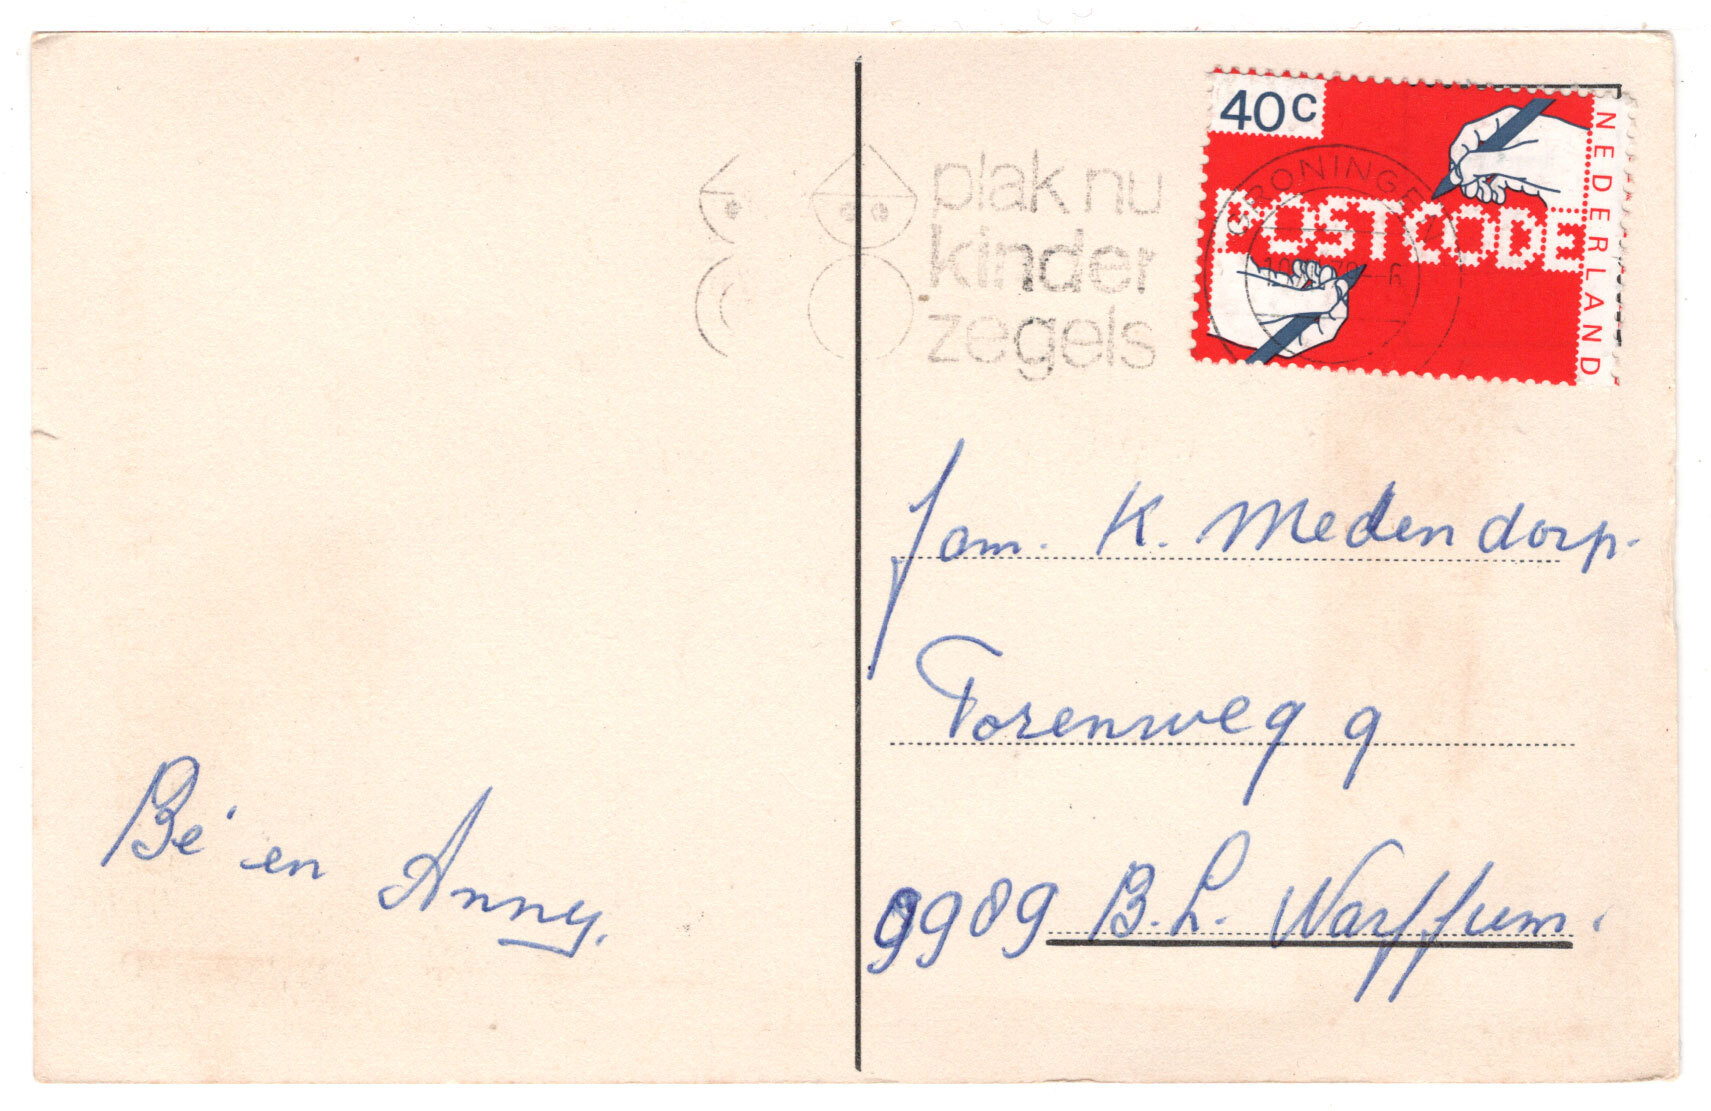 40c
NEDERLAND
POSTCODE
GRONINGEN
plak nu
kinder
zegels
fam. K. Medendorp.
Torenweg 9
9989 B.L. Warffum.
Bé en Anny.